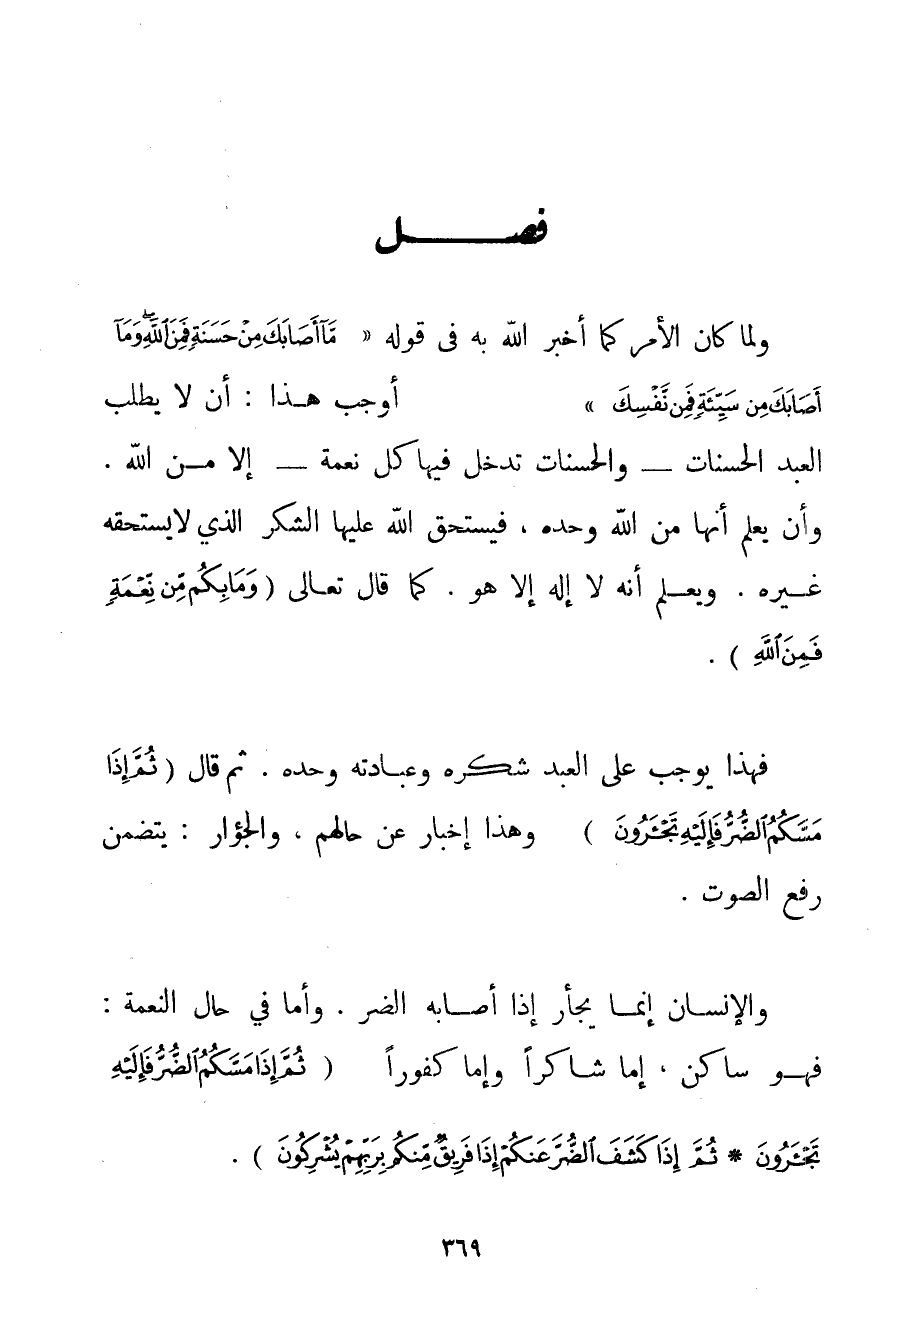 فصــــــــل
ولما كان الأمر كما أخبر الله به فى قوله « مَّآأَصَابَكَ مِنْ حَسَنَةٍ فَمِنَ ٱللَّهِۖ وَمَآ
أَصَابَكَ مِن سَيِّئَةٍ فَمِن نَّفْسِكَ » أوجب هـذا : أن لا يطلب
العبد الحسنات — والحسنات تدخل فيها كل نعمة — إلا مـن الله .
وأن يعلم أنها من الله وحده ، فيستحق الله عليها الشكر الذي لايستحقه
غـيره . ويعـلم أنه لا إله إلا هو . كما قال تعـالى ( وَمَابِكُم مِّن نِّعْمَةٍ
فَمِنَ ٱللَّهِ ) .
فهذا يوجب على العبد شكره وعبـادته وحده . ثم قال ( ثُمَّ إِذَا
مَسَّكُمُ ٱلضُّرُّ فَإِلَيْهِ تَجْـَٔرُونَ ) وهذا إخبار عن حالهم ، والجؤار : يتضمن
رفع الصوت .
والإنسـان إنمـا يجأر إذا أصـابه الضر . وأما في حال النعمة :
فهـو ساكن ، إما شـاكراً وإما كفوراً ( ثُمَّ إِذَا مَسَّكُمُ ٱلضُّرُّ فَإِلَيْهِ
تَجْـَٔرُونَ * ثُمَّ إِذَا كَشَفَ ٱلضُّرَّ عَنكُمْ إِذَا فَرِيقٌ مِّنكُم بِرَبِّهِمْ يُشْرِكُونَ ) .
٣٦٩